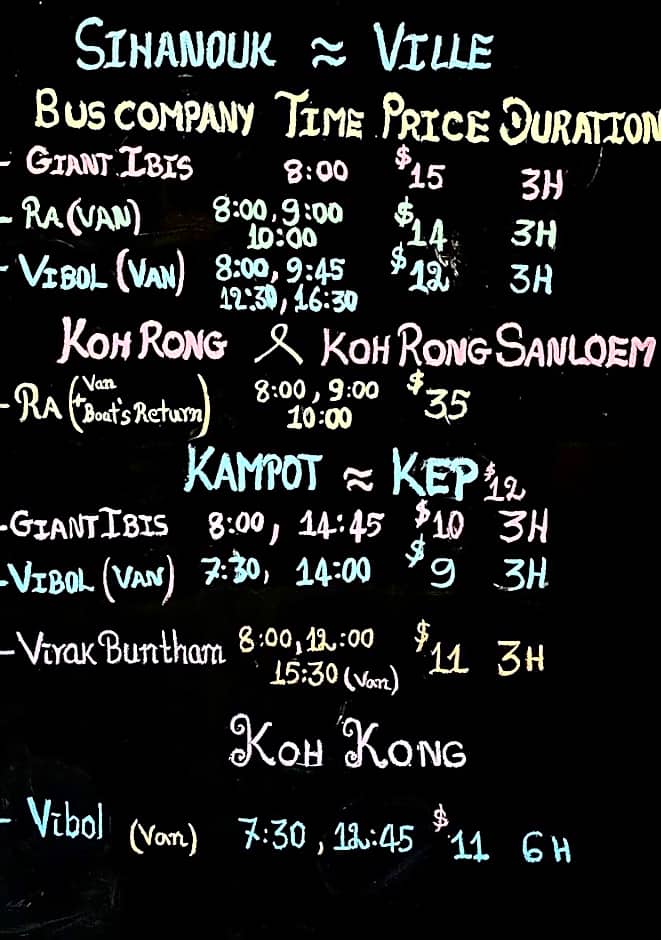 SIHANOUK ≈ VILLE
BUS COMPANY TIME PRICE DURATION
- GIANT IBIS 8:00 $15 3H
- RA (VAN) 8:00, 9:00 $14 3H
10:00
- VIBOL (VAN) 8:00, 9:45 $12 3H
12:30, 16:30
KOH RONG & KOH RONG SANLOEM
- RA (Van + Boat's Return) 8:00, 9:00 $35
10:00
KAMPOT ≈ KEP $12
- GIANT IBIS 8:00, 14:45 $10 3H
- VIBOL (VAN) 7:30, 14:00 $9 3H
- Virak Buntham 8:00, 12:00 $11 3H
15:30 (Van)
KOH KONG
- Vibol (Van) 7:30, 12:45 $11 6H